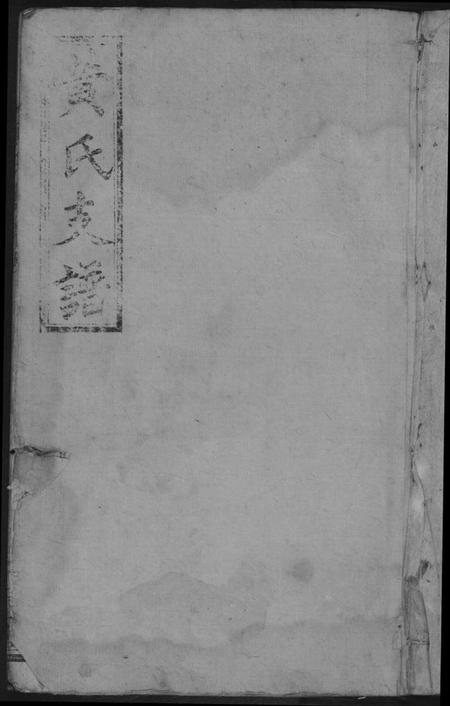 黄氏支譜